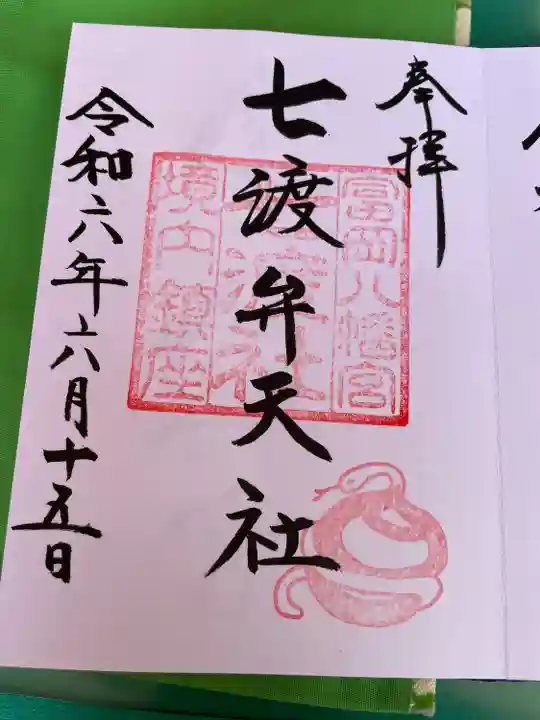 奉拝
七渡弁天社
富岡八幡宮
七渡社
境内鎮座
令和六年六月十五日